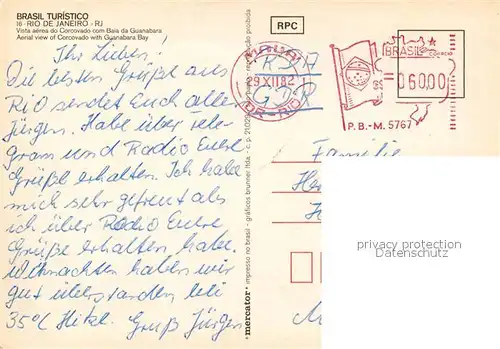 BRASIL TURÍSTICO
16 - RIO DE JANEIRO - RJ
Vista aérea do Corcovado com Baía da Guanabara
Aerial view of Corcovado with Guanabara Bay
Ihr Lieben!
Die besten Grüße aus
Rio sendet Euch allen
Jürgen. Habe über Tele-
gram und Radio Eure
Grüße erhalten. Ich habe
mich sehr gefreut als
ich über Radio Eure
Grüße erhalten habe.
Weihnachten haben wir
gut überstanden bei
35°C Hitze. Gruß Jürgen
mercator impresso no brasil - gráficos brunner ltda. - c. p.
proibida
RPC
29 XII 82
DR-RIO
DDR
BRASIL
CORREIO
06000
P.B.-M. 5767
Familie
privacy protection
Datenschutz